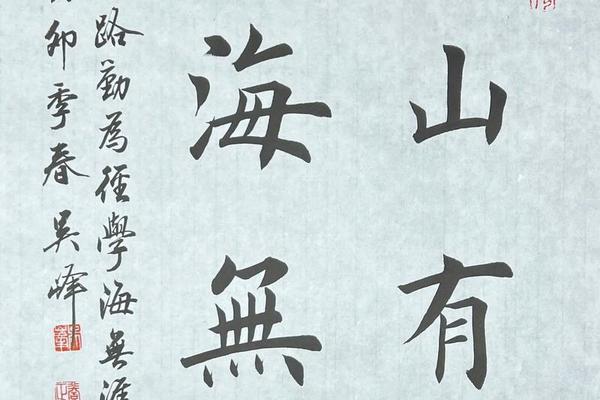 山有
海無
路勤為徑學海無涯
卯季春吳峰